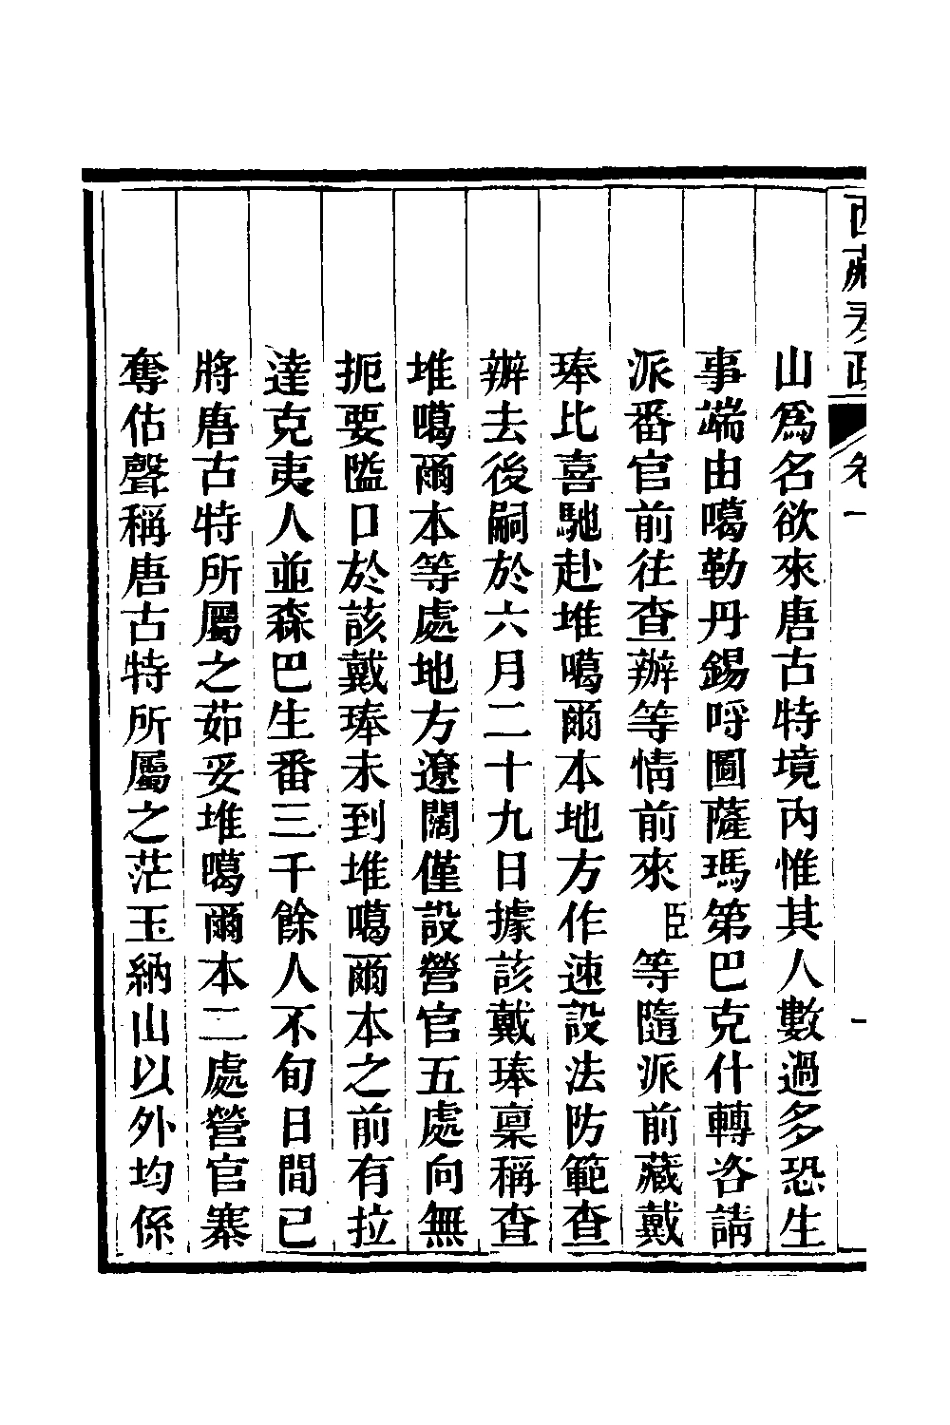 西藏奏疏 卷一 一
山爲名欲來唐古特境內惟其人數過多恐生
事端由噶勒丹錫呼圖薩瑪第巴克什轉咨請
派番官前往查辦等情前來臣等隨派前藏戴
琫比喜馳赴堆噶爾本地方作速設法防範查
辦去後嗣於六月二十九日據該戴琫稟稱查
堆噶爾本等處地方遼闊僅設營官五處向無
扼要隘口於該戴琫未到堆噶爾本之前有拉
達克夷人並森巴生番三千餘人不旬日間已
將唐古特所屬之茹妥堆噶爾本二處營官寨
奪佔聲稱唐古特所屬之茫玉納山以外均係